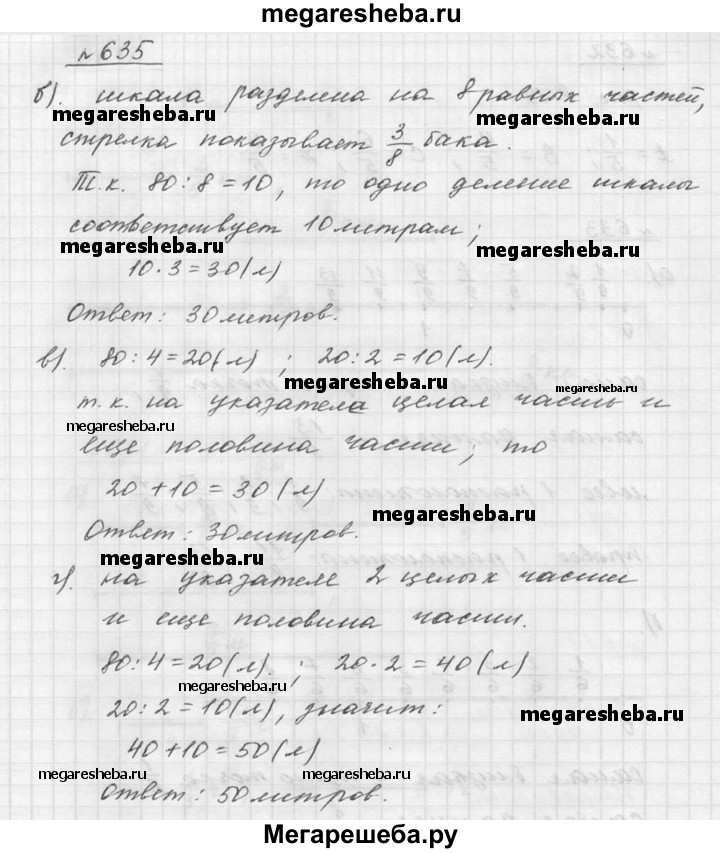 megaresheba.ru
№635
б). шкала разделена на 8 равных частей,
megaresheba.ru megaresheba.ru
стрелка показывает 3/8 бака.
Т.к. 80:8=10, то одно деление шкалы
соответствует 10 литрам;
megaresheba.ru megaresheba.ru
10·3=30(л)
Ответ: 30 литров.
в). 80:4=20(л) ; 20:2=10(л).
megaresheba.ru megaresheba.ru
т.к. на указателе целая часть и
megaresheba.ru
еще половина части; то
20+10=30(л)
megaresheba.ru
Ответ: 30 литров.
megaresheba.ru
г). на указателе 2 целых части
и еще половина части.
80:4=20(л). ; 20·2=40(л)
megaresheba.ru
20:2=10(л), значит:
megaresheba.ru
40+10=50(л)
megaresheba.ru megaresheba.ru
Ответ: 50 литров.
Мегарешеба.ру